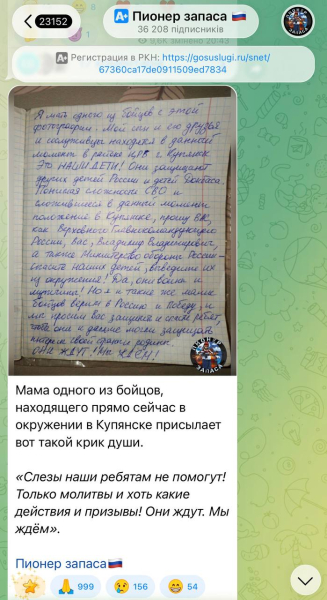 23152
Пионер запаса 🇷🇺
36 208 підписників
A+ Регистрация в РКН: https://gosuslugi.ru/snet/
67360ca17de0911509ed7834
Я мать одного из бойцов с этой
фотографии. Мой сын и его друзья
и сослуживцы находятся в данный
момент в районе ЦРБ г. Купянск
Это НАШИ ДЕТИ! Они защищают
других детей России и детей Донбасса.
Понимая сложность СВО и
сложившееся в данный момент
положение в Купянске, прошу ВАС,
как Верховного Главнокомандующего
России, Вас, Владимир Владимирович,
а также Министерство обороны России-
спасите наших детей, выведите их
из окружения! Да, они воины и
мужчины! Но я и такие же мамы
бойцов верим в Россию и Победу, и
мы просим Вас защитить и спасти ребят,
чтобы они и дальше могли защищать
своей родины
ОНИ ЖДУТ! МЫ ЖДЕМ!
ПИОНЕР
ЗАПАСА
Мама одного из бойцов,
находящего прямо сейчас в
окружении в Купянске присылает
вот такой крик души.
«Слезы наши ребятам не помогут!
Только молитвы и хоть какие
действия и призывы! Они ждут. Мы
ждём».
Пионер запаса🇷🇺
999 156 54